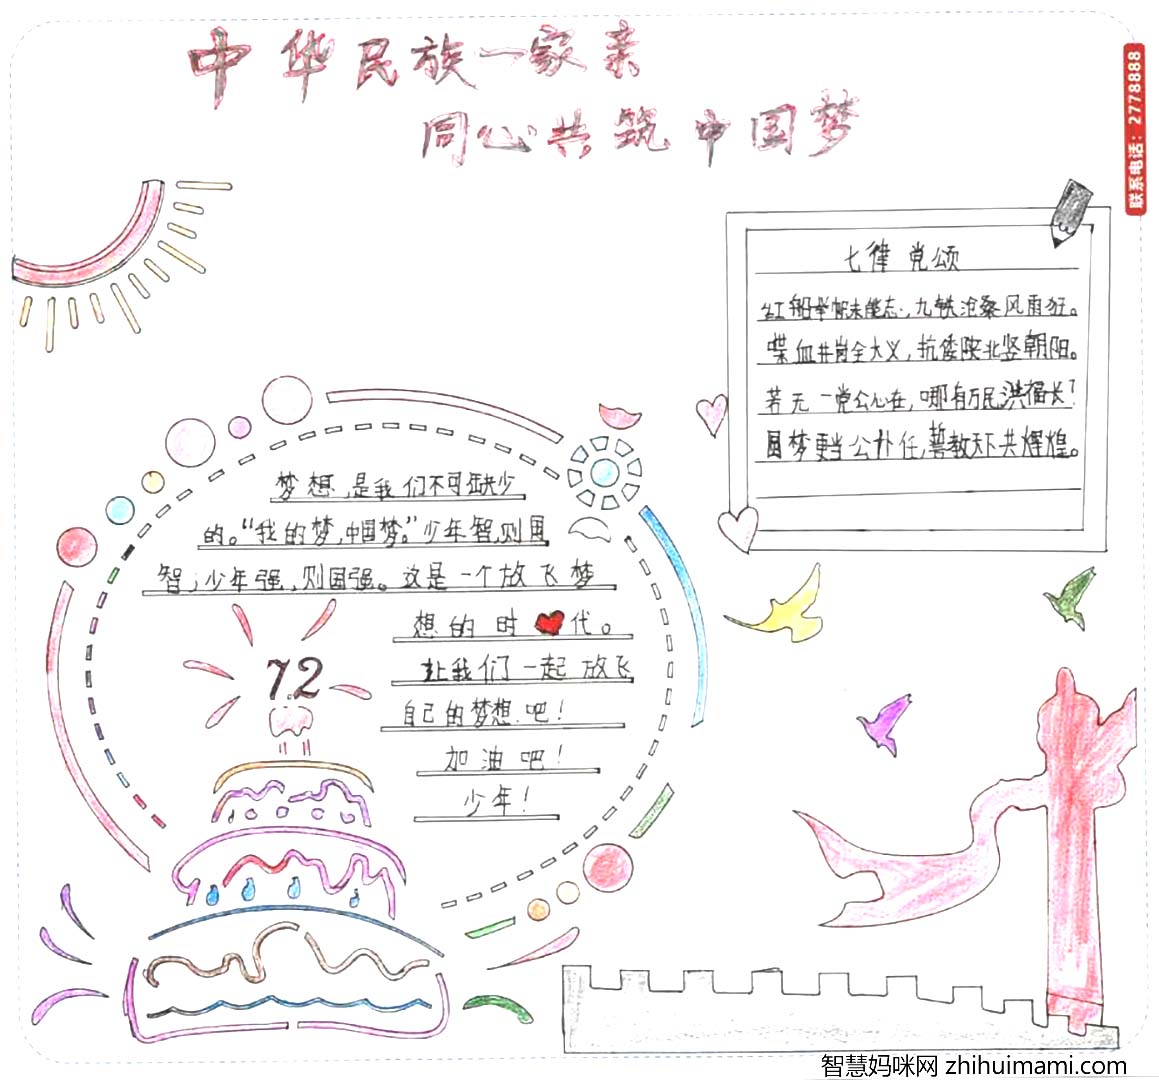 中华民族一家亲
同心共筑中国梦
联系电话：2778888
七律 党颂
红船举帆未能忘，九轶沧桑风雨狂。
喋血井岗全大义，抗倭陕北竖朝阳。
若无一党公心在，哪有万民洪福长？
圆梦更当公仆任，誓教天下共辉煌。
梦想，是我们不可缺少
的。“我的梦，中国梦。”少年智，则国
智；少年强，则国强。这是一个放飞梦
想的时代。
让我们一起放飞
自己的梦想吧！
加油吧！
少年！
72
智慧妈咪网 zhihuimami.com